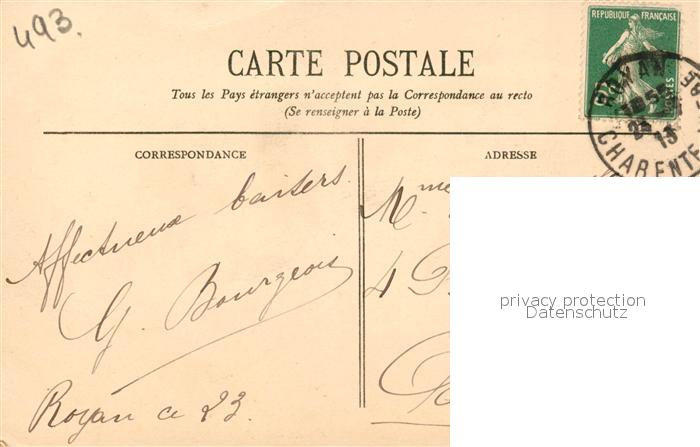 493.
RÉPUBLIQUE FRANÇAISE
POSTES
ROYAN
23
13
CHARENTE
CARTE POSTALE
Tous les Pays étrangers n'acceptent pas la Correspondance au recto
(Se renseigner à la Poste)
CORRESPONDANCE
ADRESSE
Affectueux baisers.
G. Bourgeois
Royan ce 23.
Mme
4
privacy protection
Datenschutz